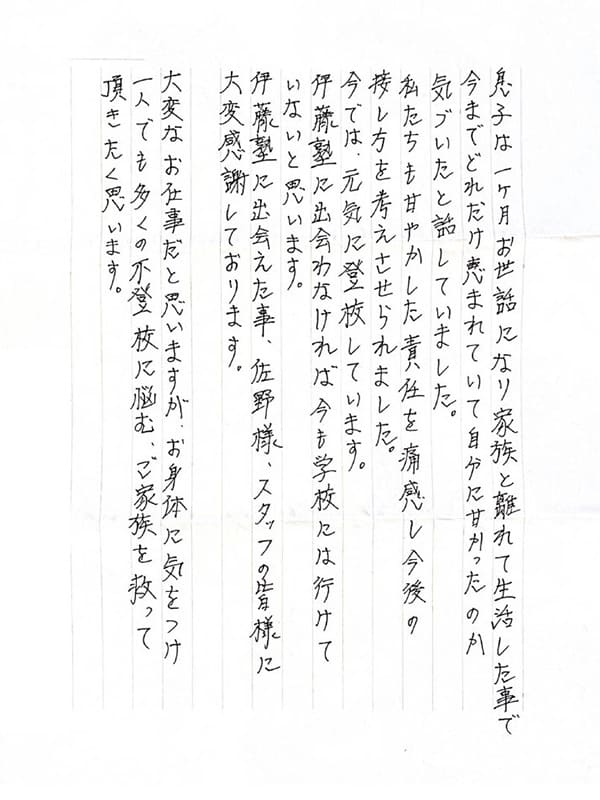 息子は一ケ月お世話になり家族と離れて生活した事で
今までどれだけ恵まれていて自分に甘かったのか
気づいたと話していました。
私たちも甘やかした責任を痛感し今後の
接し方を考えさせられました。
今では、元気に登校しています。
伊藤塾に出会わなければ今も学校には行けて
いないと思います。
伊藤塾に出会えた事、佐野様、スタッフの皆様に
大変感謝しております。
大変なお仕事だと思いますが、お身体に気をつけ
一人でも多くの不登校に悩む、ご家族を救って
頂きたく思います。